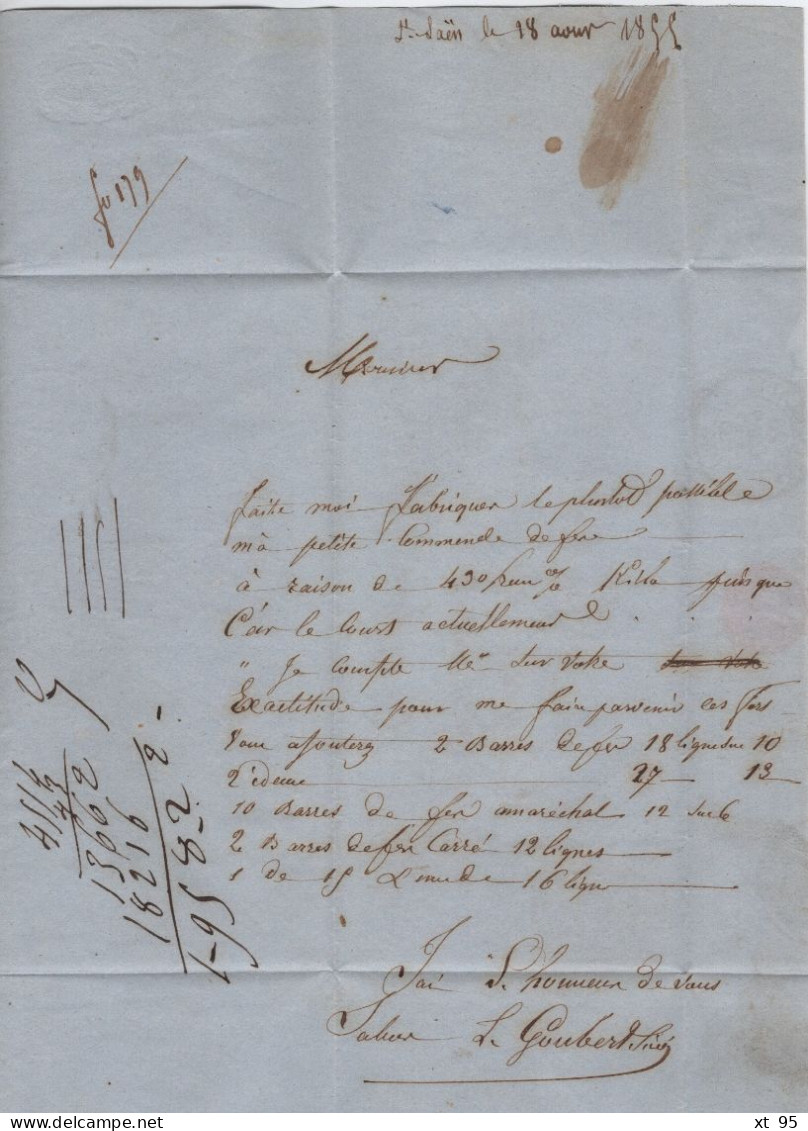 St Saën le 18 aout 1855
fo 179
Monsieur
faite moi fabriquer le plustot possible
mà petite Commende de fer
à raison de 430 % Kilo puisque
C'ár le Cours actuellement
" Je compte Mr Sur votre
Exactitude pour me fair parvenir ces fers
Vous ajouterez 2 Barres de fer 18 lignes sur 10
2 idem 27 13
10 Barres de fer amaréchal 12 sur 6
2 Barres de fer Carré 12 lignes
1 de 15 L'une de 16 ligne
Jai L'honneur de vous
Saluer L. Goubert
4554
43
13662
18216
1-958-22
xt 95